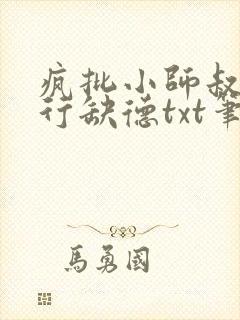 疯批小師叔
行缺德txt筆
馬勇國